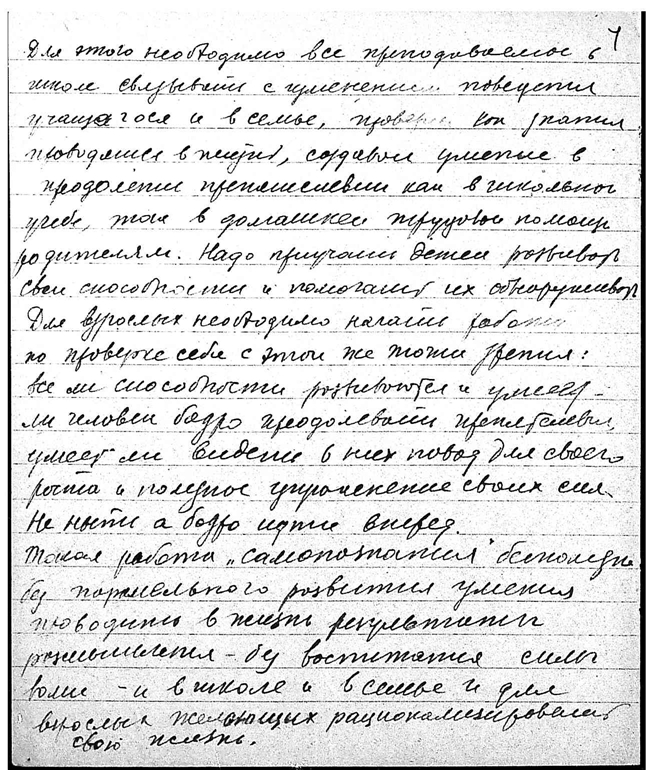 7
Для этого необходимо все преподаваемое в
школе связывать с изменением поведения
учащегося и в семье, как знания
проводятся в жизнь, создавая умение в
преодолении препятствии как в школьной
учебе, так в домашней трудовой помощи
родителям. Надо приучать детей развиват
свои способности и помогать их обнаруживат
Для взрослых необходимо начать работу
по проверке себя с этой же точки зрения:
все ли способности развиваются и умеет-
ли человек бодро преодолевать препятствия,
умеет ли видеть в них повод для своего
роста и полезное упражнение своих сил.
Не ныть а бодро идти вперед.
Такая работа „самопознания" бесполезна
без параллельного развития умения
проводить в жизнь результаты
размышления - без воспитания силы
воли - и в школе и в семье и для
взрослых желающих рационализировать
свою жизнь.